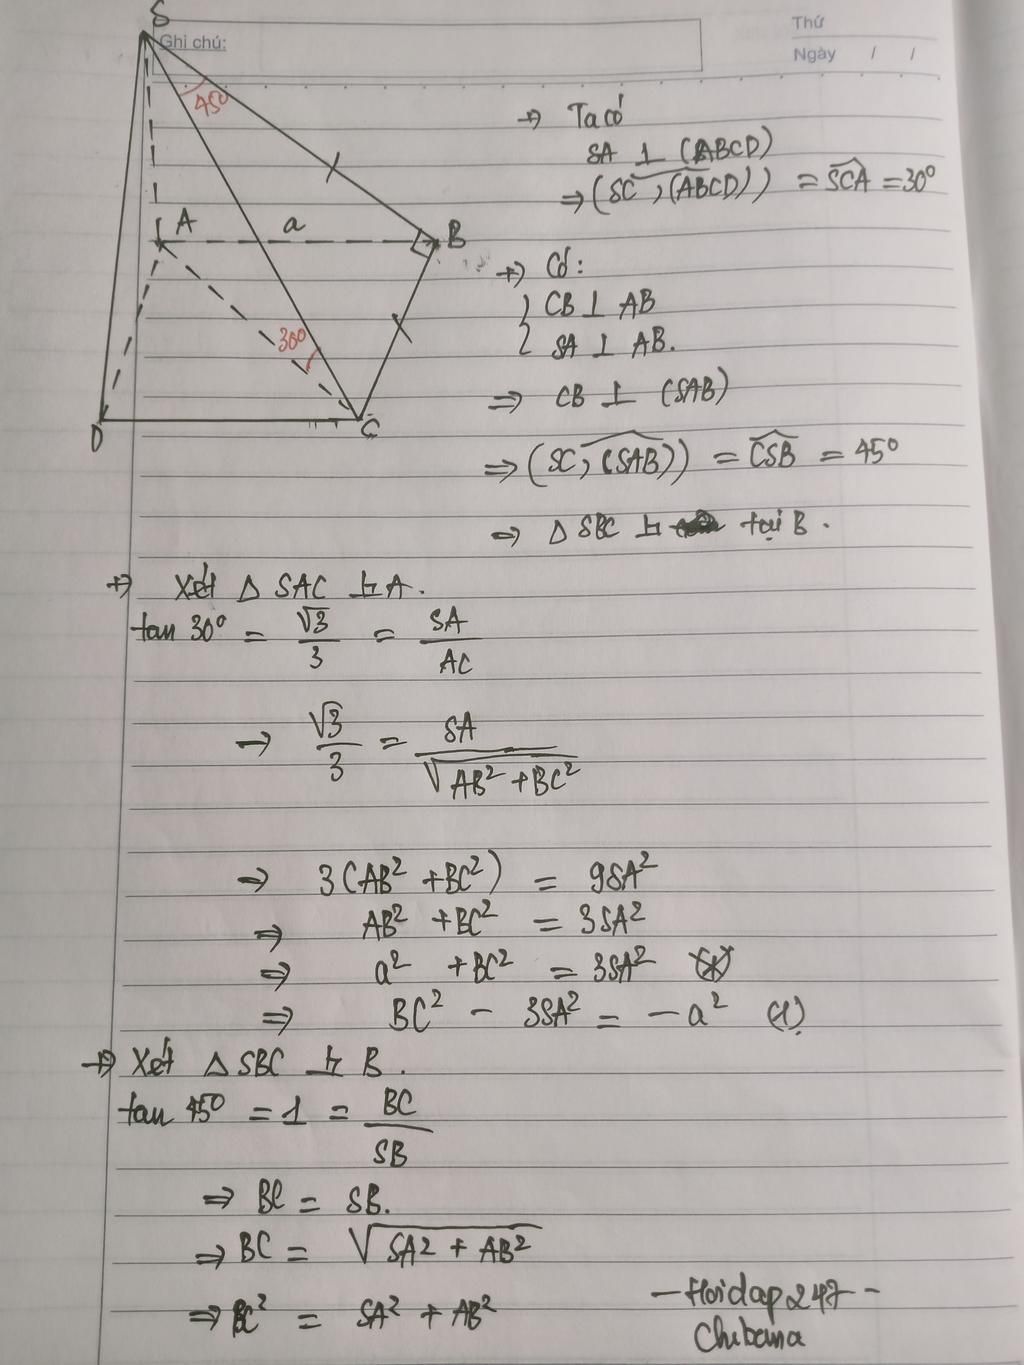 S
Ghi chú:
Thứ
Ngày / /
45°
A
a
B
30°
D
C
→ Ta có
SA ⊥ (ABCD)
⇒ (SC, (ABCD)) = SCA = 30°
→ Có:
{ CB ⊥ AB
SA ⊥ AB.
⇒ CB ⊥ (SAB)
⇒ (SC, (SAB)) = CSB = 45°
⇒ Δ SBC ⊥ tại B.
→ Xét Δ SAC ⊥ A.
tan 30° = √3/3 = SA/AC
→ √3/3 = SA/√(AB² + BC²)
→ 3(AB² + BC²) = 9SA²
⇒ AB² + BC² = 3SA²
⇒ a² + BC² = 3SA²
⇒ BC² - 3SA² = -a² (1)
→ Xét Δ SBC ⊥ B.
tan 45° = 1 = BC/SB
⇒ BC = SB.
⇒ BC = √(SA² + AB²)
⇒ BC² = SA² + AB²
- Hoidap247 -
Chibana